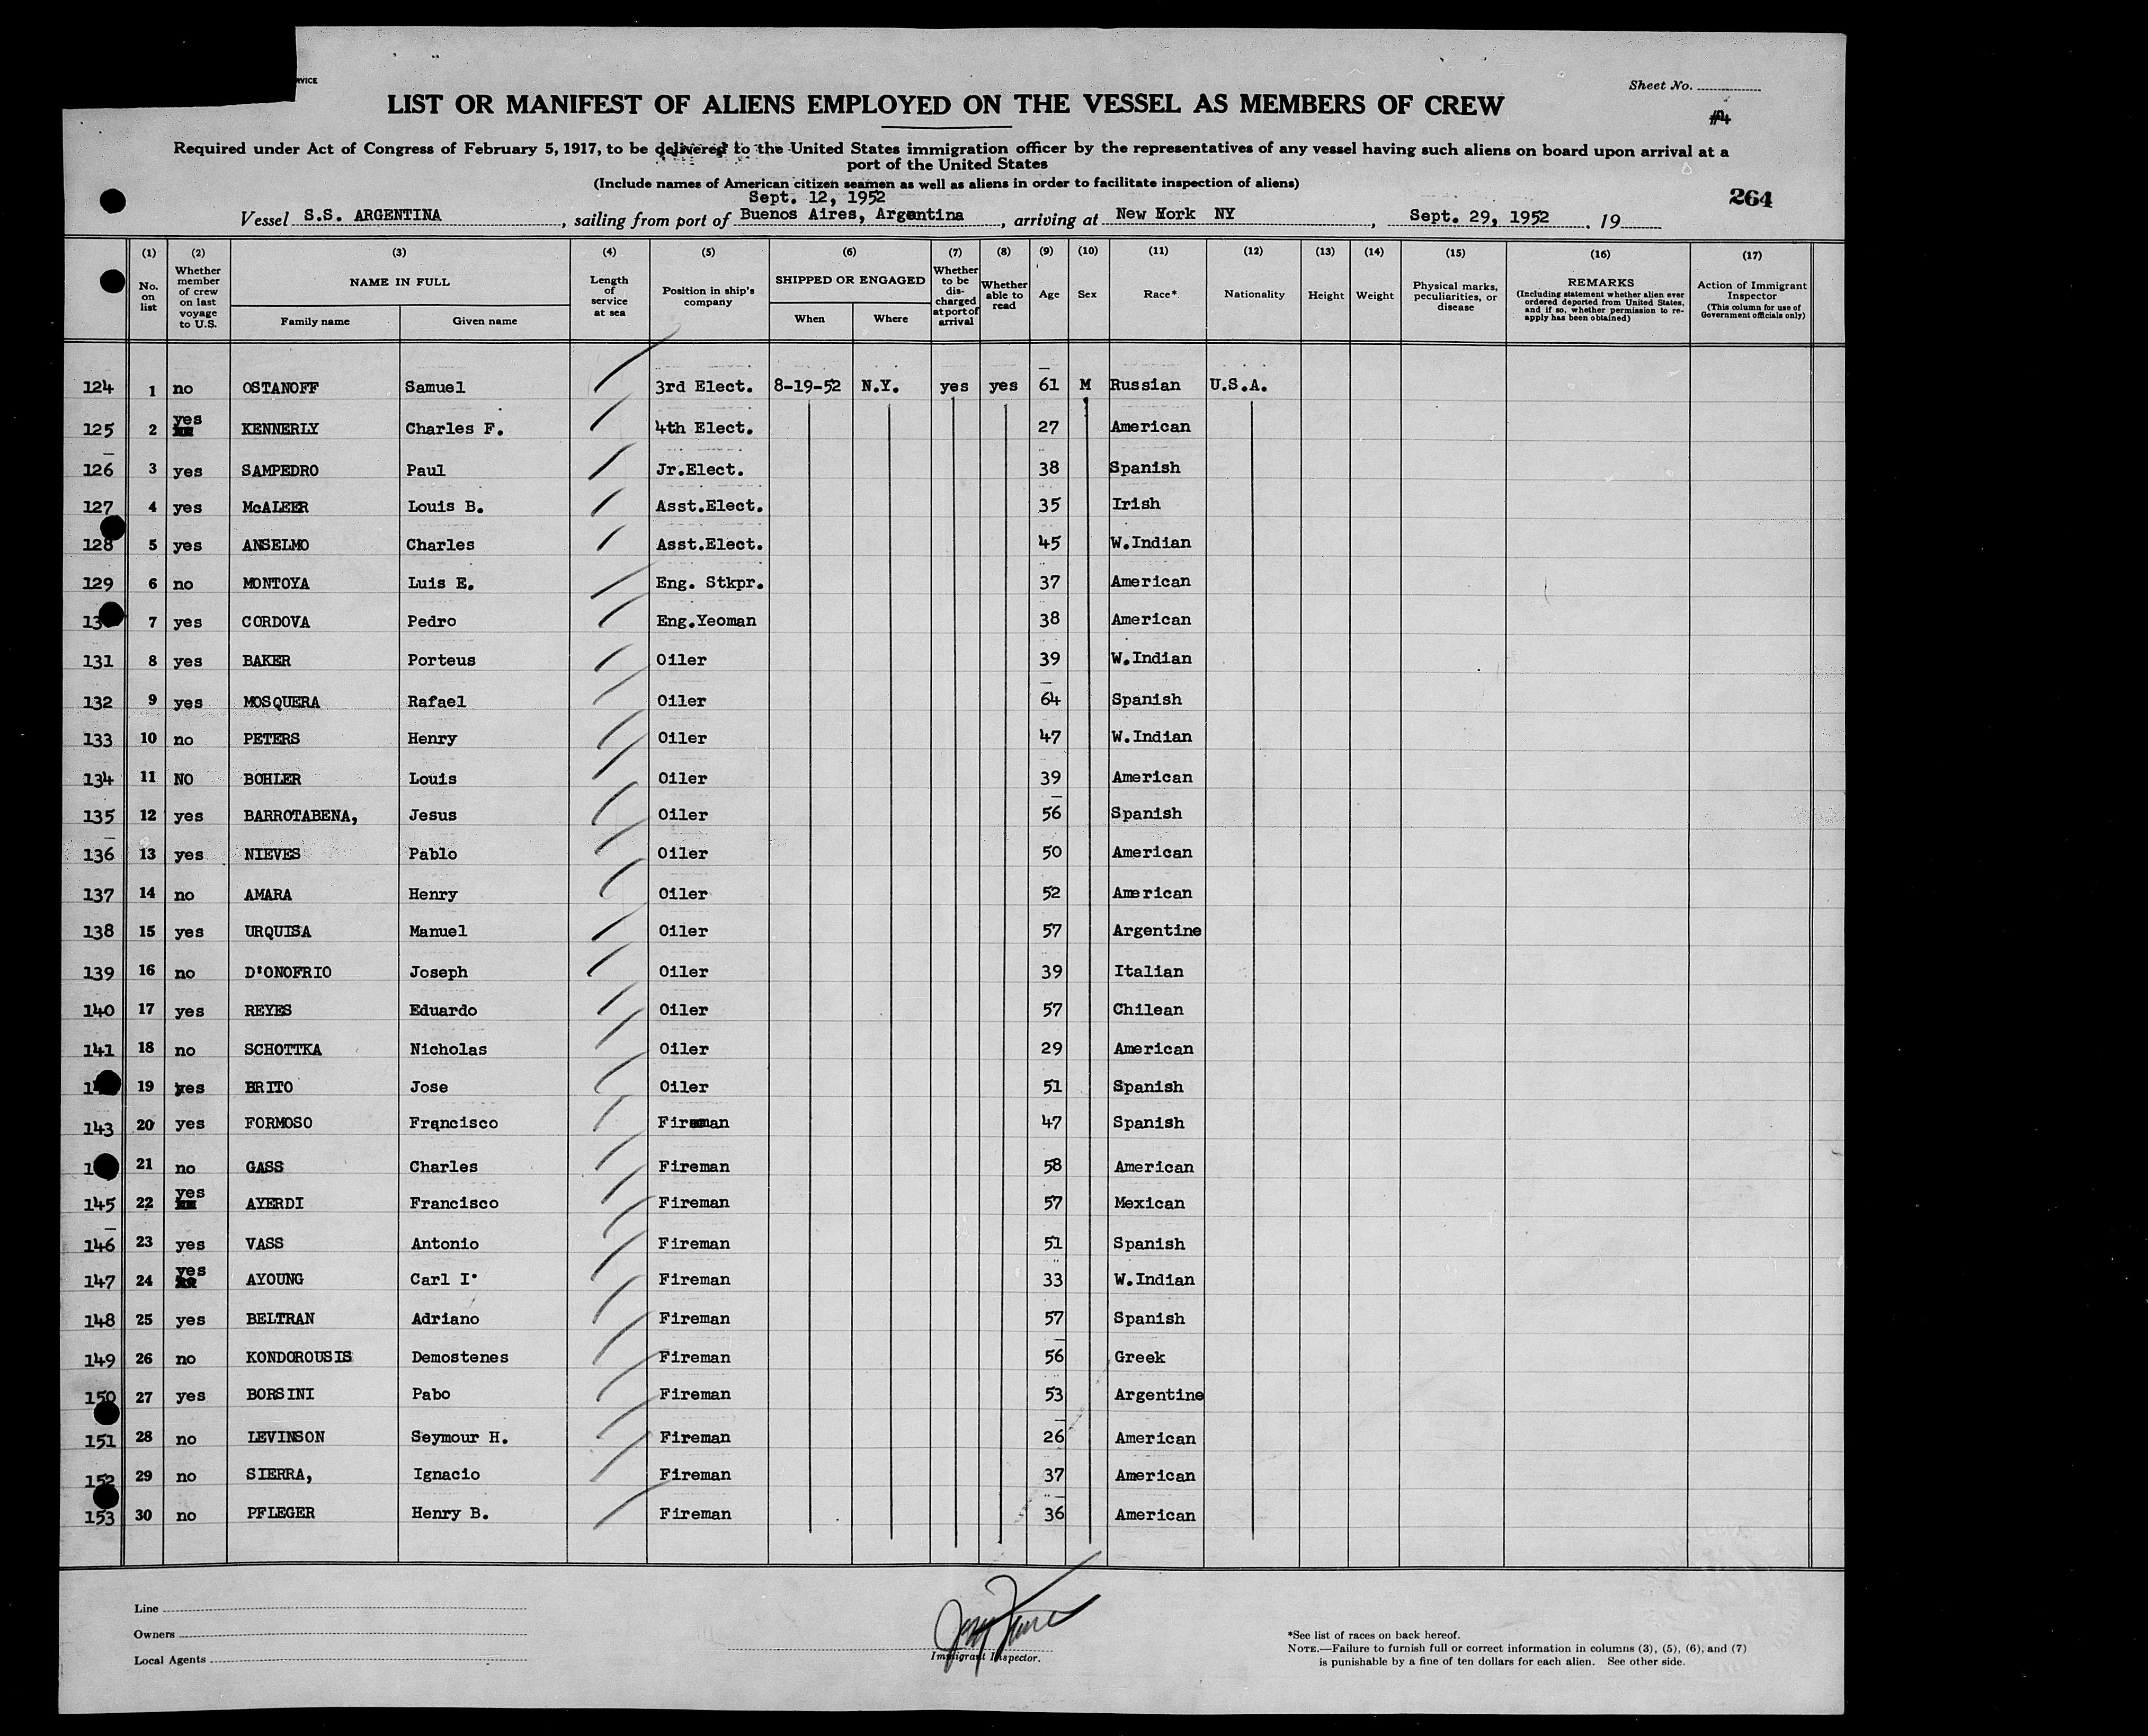 RVICE
Sheet No.
#4
LIST OR MANIFEST OF ALIENS EMPLOYED ON THE VESSEL AS MEMBERS OF CREW
Required under Act of Congress of February 5, 1917, to be delivered to the United States immigration officer by the representatives of any vessel having such aliens on board upon arrival at a
port of the United States
(Include names of American citizen seamen as well as aliens in order to facilitate inspection of aliens)
264
Sept. 12, 1952
Vessel S.S. ARGENTINA, sailing from port of Buenos Aires, Argentina, arriving at New York NY, Sept. 29, 1952. 19
(1) (2) (3) (4) (5) (6) (7) (8) (9) (10) (11) (12) (13) (14) (15) (16) (17)
No. on list
Whether member of crew on last voyage to U.S.
NAME IN FULL
Family name Given name
Length of service at sea
Position in ship's company
SHIPPED OR ENGAGED
When Where
Whether to be dis-charged at port of arrival
Whether able to read
Age
Sex
Race*
Nationality
Height
Weight
Physical marks, peculiarities, or disease
REMARKS
(Including statement whether alien ever ordered deported from United States, and if so, whether permission to re-apply has been obtained)
Action of Immigrant Inspector
(This column for use of Government officials only)
124 1 no OSTANOFF Samuel 3rd Elect. 8-19-52 N.Y. yes yes 61 M Russian U.S.A.
125 2 yes KENNERLY Charles F. 4th Elect. 27 American
126 3 yes SAMPEDRO Paul Jr.Elect. 38 Spanish
127 4 yes McALEER Louis B. Asst.Elect. 35 Irish
128 5 yes ANSELMO Charles Asst.Elect. 45 W.Indian
129 6 no MONTOYA Luis E. Eng. Stkpr. 37 American
13 7 yes CORDOVA Pedro Eng.Yeoman 38 American
131 8 yes BAKER Porteus Oiler 39 W.Indian
132 9 yes MOSQUERA Rafael Oiler 64 Spanish
133 10 no PETERS Henry Oiler 47 W.Indian
134 11 NO BOHLER Louis Oiler 39 American
135 12 yes BARROTABENA, Jesus Oiler 56 Spanish
136 13 yes NIEVES Pablo Oiler 50 American
137 14 no AMARA Henry Oiler 52 American
138 15 yes URQUISA Manuel Oiler 57 Argentine
139 16 no D'ONOFRIO Joseph Oiler 39 Italian
140 17 yes REYES Eduardo Oiler 57 Chilean
141 18 no SCHOTTKA Nicholas Oiler 29 American
1 19 yes BRITO Jose Oiler 51 Spanish
143 20 yes FORMOSO Francisco Fireman 47 Spanish
1 21 no GASS Charles Fireman 58 American
145 22 yes AYERDI Francisco Fireman 57 Mexican
146 23 yes VASS Antonio Fireman 51 Spanish
147 24 yes AYOUNG Carl I. Fireman 33 W.Indian
148 25 yes BELTRAN Adriano Fireman 57 Spanish
149 26 no KONDOROUSIS Demostenes Fireman 56 Greek
150 27 yes BORSINI Pabo Fireman 53 Argentine
151 28 no LEVINSON Seymour H. Fireman 26 American
152 29 no SIERRA, Ignacio Fireman 37 American
153 30 no PFLEGER Henry B. Fireman 36 American
Line
Owners
Local Agents
Immigrant Inspector.
*See list of races on back hereof.
NOTE.—Failure to furnish full or correct information in columns (3), (5), (6), and (7)
is punishable by a fine of ten dollars for each alien. See other side.